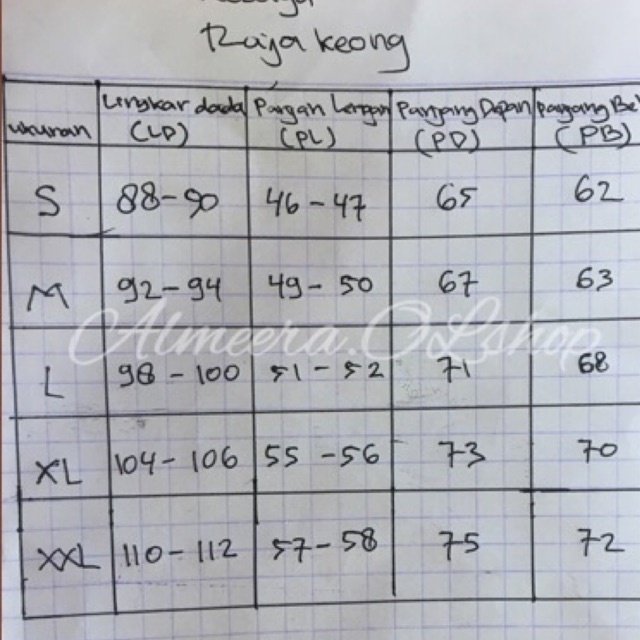 Raja keong
ukuran Lingkar dada Panjan Lengan Panjang Depan Panjang
(LD) (PL) (PD) (PB)
S 88-90 46-47 65 62
M 92-94 49-50 67 63
Almeera.OLshop
L 98-100 51-52 71 68
XL 104-106 55-56 73 70
XXL 110-112 57-58 75 72